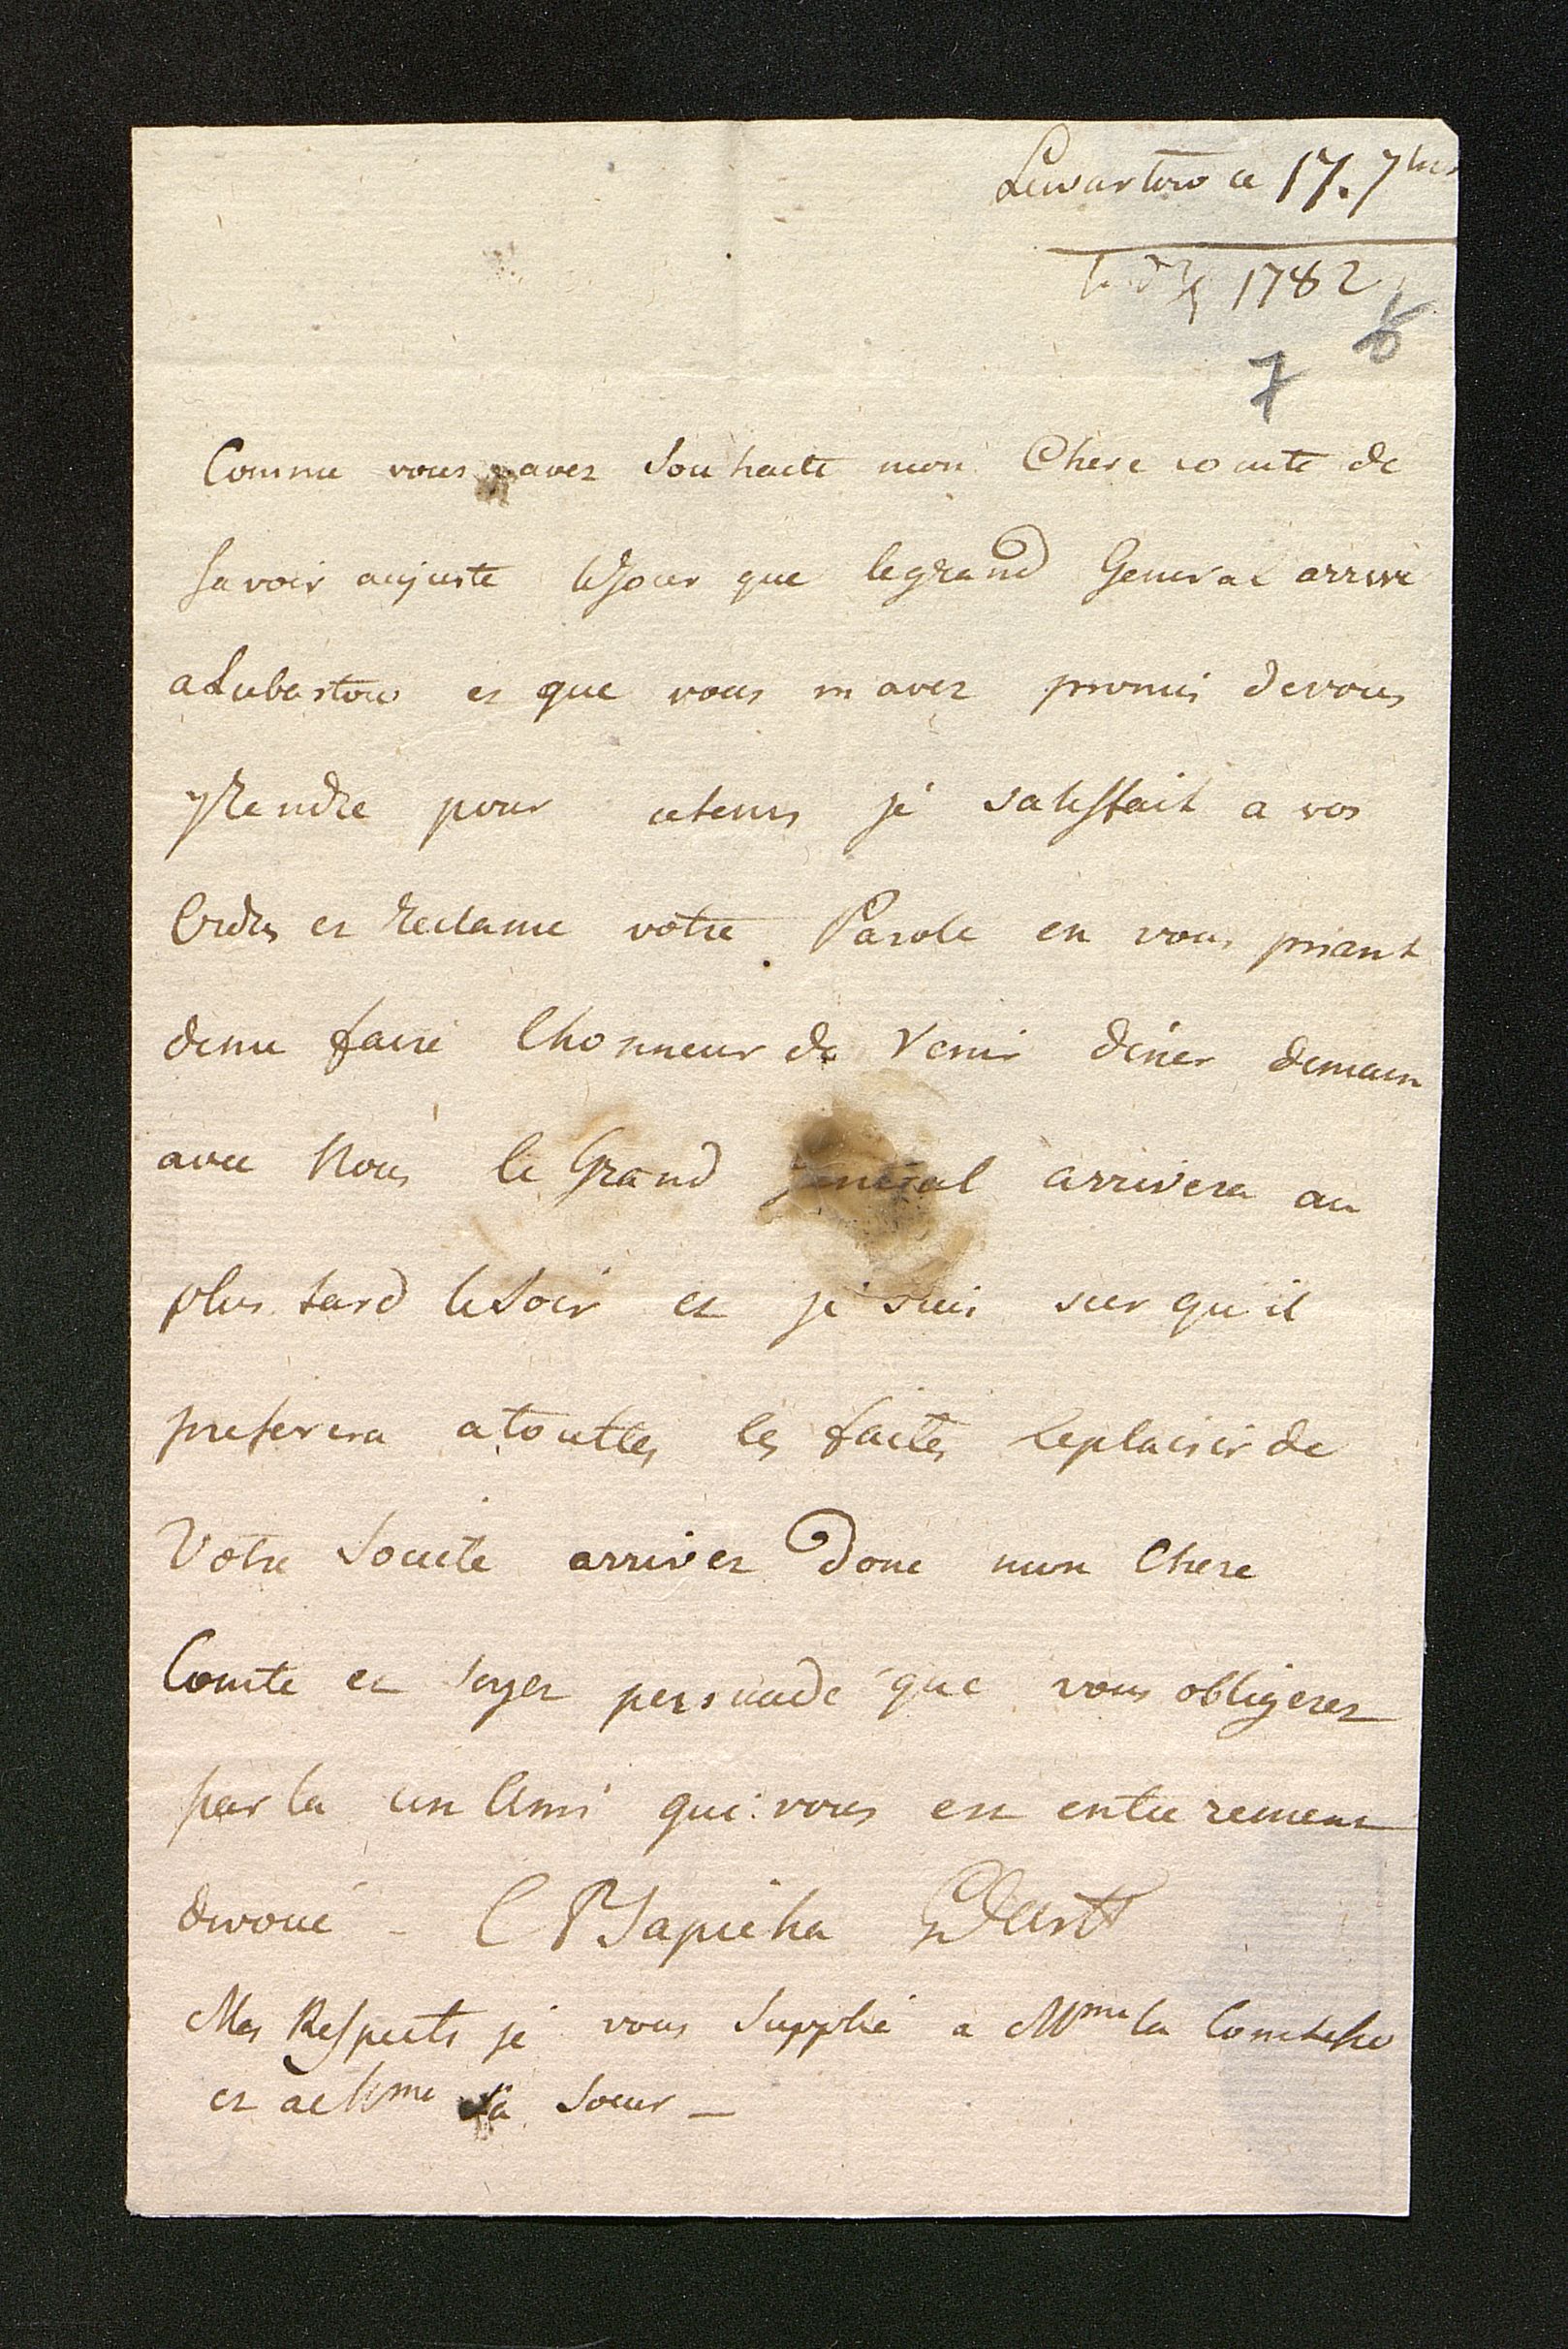 Lewartow ce 17. 7bre
1782
6
7
Comme vous avez Souhaite mon Chere comte de
Savoir aujuste leJour que legrand General arrive
aLubartow et que vous mavez promis devous
yRendre pour cetems je satisfait a vos
Ordres et Reclame votre Parole en vous priant
deme faire lhonneur de Venir diner demain
avec Nous le Grand general arrivera au
plus tard leSoir et je suis sur quil
preferera atouttes les faites leplaisir de
Votre Societe arrivez Donc mon Chere
Comte et soyez persuade que vous obligerez
par la un Ami qui vous est entierement
devoué - C P Sapieha
Mes Respects je vous Supplie a Mme la Comtesse
et a Mme sa Soeur -